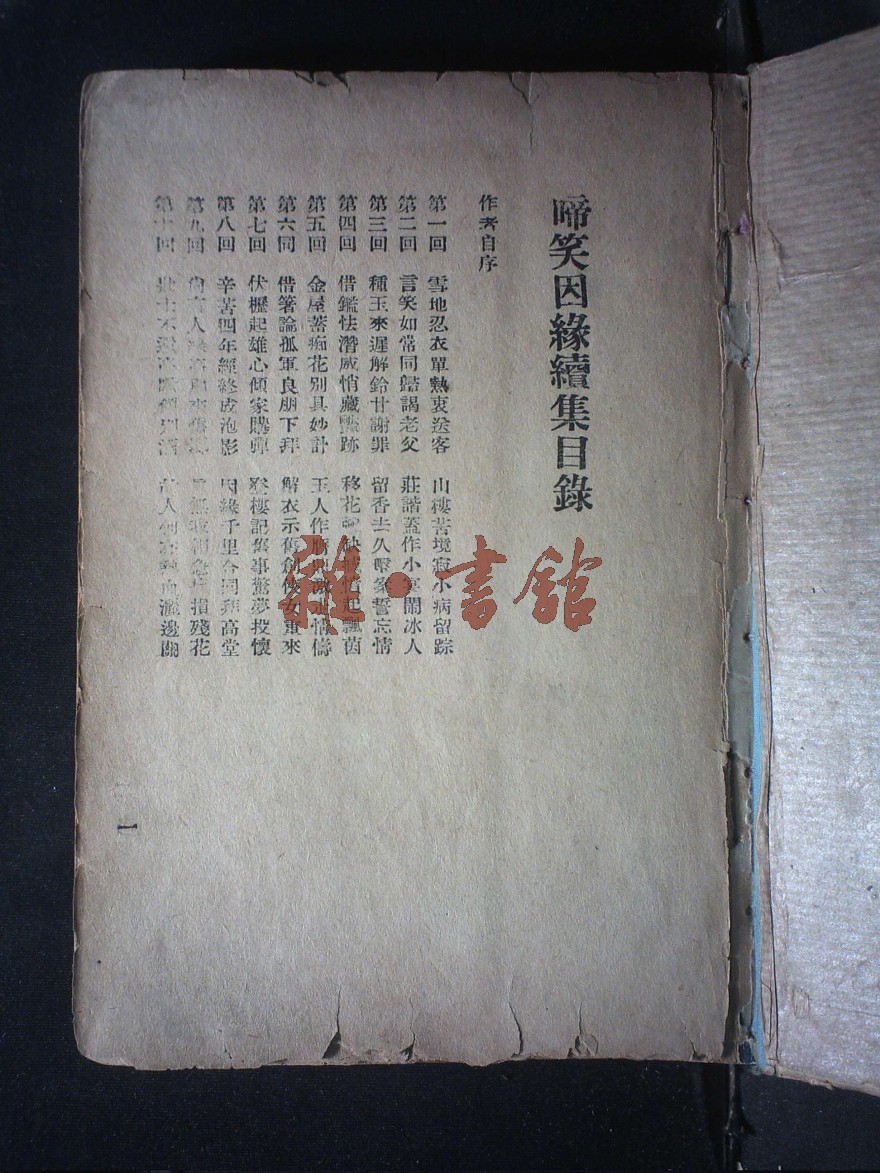 啼笑因緣續集目錄
作者自序
第一回 雪地忍衣單熱衷送客 山樓苦境寂小病留踪
第二回 言笑如常同謁老父 莊諧蓋作小宴鬧冰人
第三回 種玉來遲解鈴甘謝罪 留香去久擊案誓忘情
第四回 借鑑怯潛威悄藏豔跡 移花 起飄茵
第五回 金屋蓄痴花別具妙計 玉人作 情儔
第六回 借箸論孤軍良朋下拜 解衣示舊創俠女重來
第七回 伏櫪起雄心傾家購彈 登樓記舊事驚夢投懷
第八回 辛苦四年經終成泡影 因緣千里合同拜高堂
第九回 人 來 損殘花
第十回 壯士不 別酒 人 熱血灑邊關
一
雜·書館